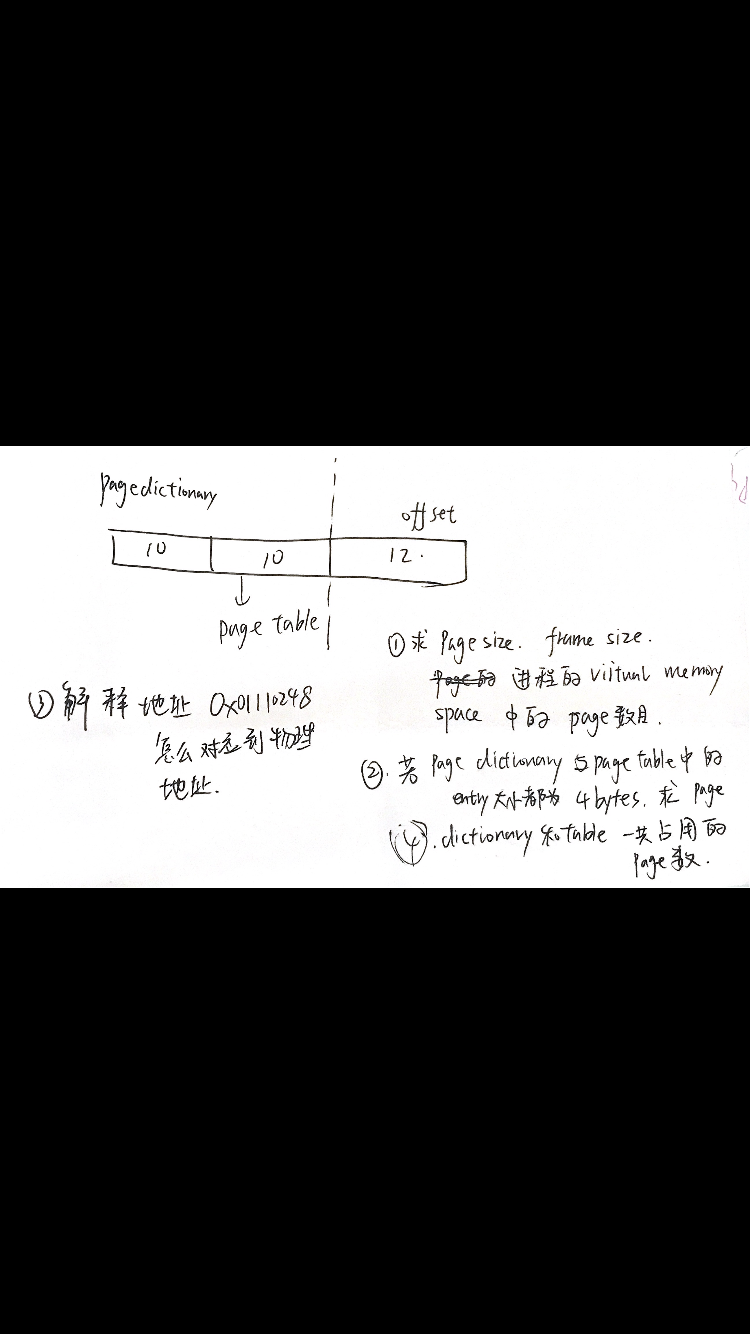 pagedictionary
offset
10 10 12.
page table
① 求 Page size. frame size.
Page的 进程的 virtual memory
space 中的 page数目.
②. 若 page dictionary 与 page table 中的
entry 大小都为 4 bytes. 求 page
④. dictionary 和 table 一共占用的
page数.
③ 解释 地址 0x01110248
怎么对应到物理
地址.